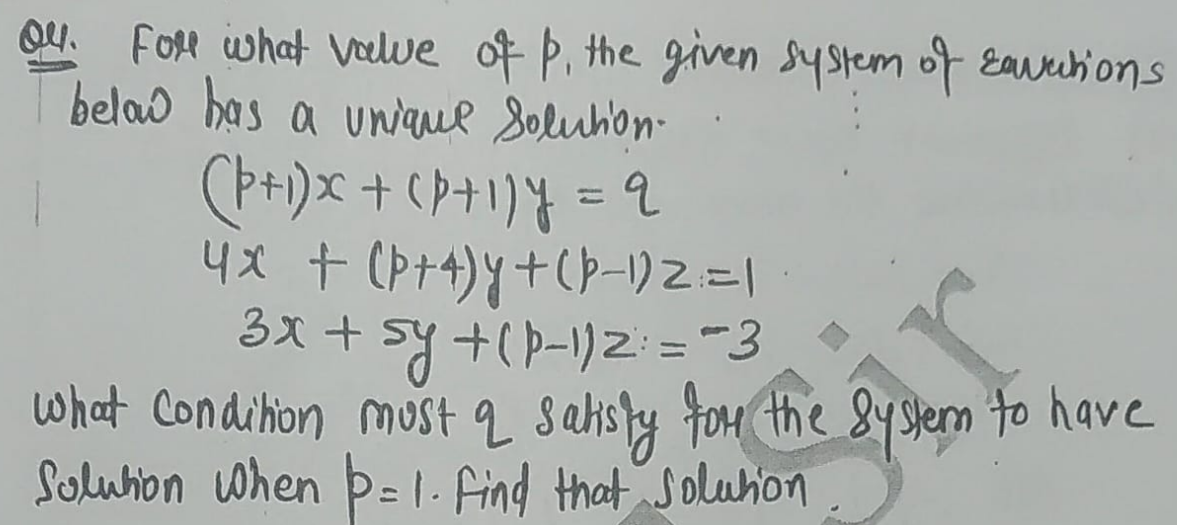 Q4. For what value of p, the given system of equations
below has a unique solution.
(p+1)x + (p+1)y = q
4x + (p+4)y + (p-1)z = 1
3x + 5y + (p-1)z = -3
what condition must q satisfy for the system to have
solution when p = 1. find that solution.
Sir